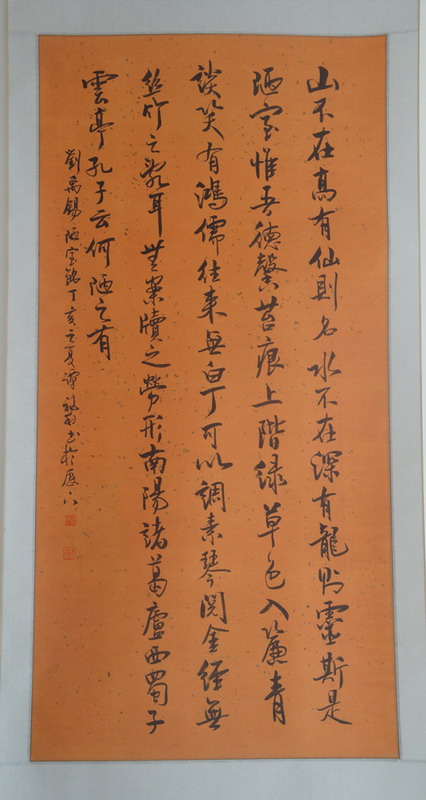 山不在高有仙則名水不在深有龍则靈斯是
陋室惟吾德馨苔痕上階緑草色入簾青
談笑有鴻儒往来無白丁可以調素琴閱金經無
丝竹之亂耳無案牘之勞形南陽諸葛廬西蜀子
雲亭孔子云何陋之有
劉禹錫陋室銘丁亥之夏譚书於歷下